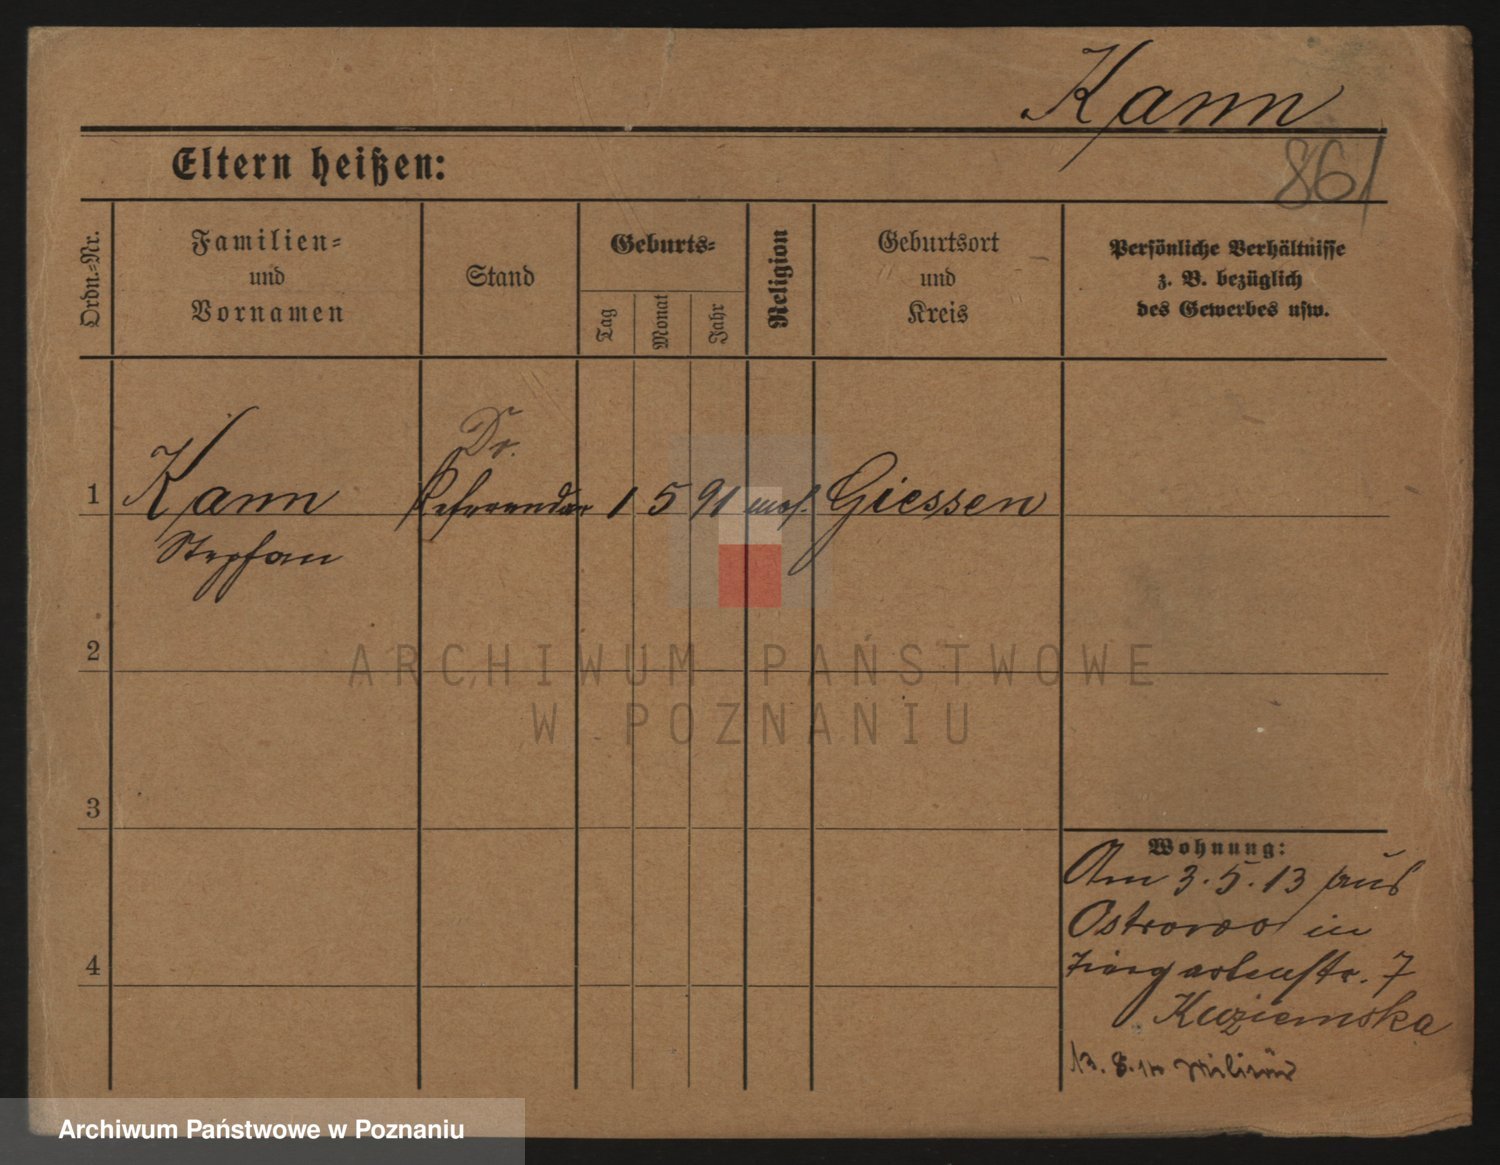 Kann
861
Eltern heißen:
Ordn.-Nr.
Familien-
und
Vornamen
Stand
Geburts-
Tag
Monat
Jahr
Religion
Geburtsort
und
Kreis
Persönliche Verhältnisse
z. B. bezüglich
des Gewerbes usw.
Dr.
1 Kann Referendar 1 5 91 mos. Giessen
Stephan
2
3
4
Wohnung:
Am 3.5.13 aus
Ostrowo in
Tiergartenstr. 7
Kuziemska
13. 8. 14 Militär
ARCHIWUM PAŃSTWOWE
W POZNANIU
Archiwum Państwowe w Poznaniu